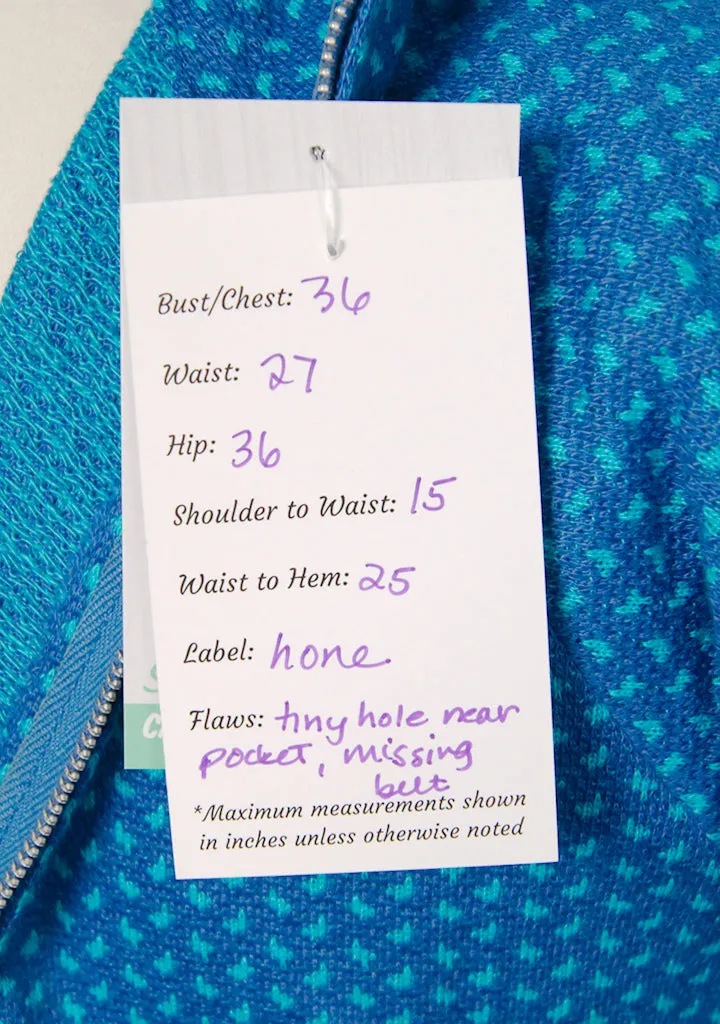 Bust/Chest: 36
Waist: 27
Hip: 36
Shoulder to Waist: 15
Waist to Hem: 25
Label: none
Flaws: tiny hole near
pocket, missing
belt
*Maximum measurements shown
in inches unless otherwise noted